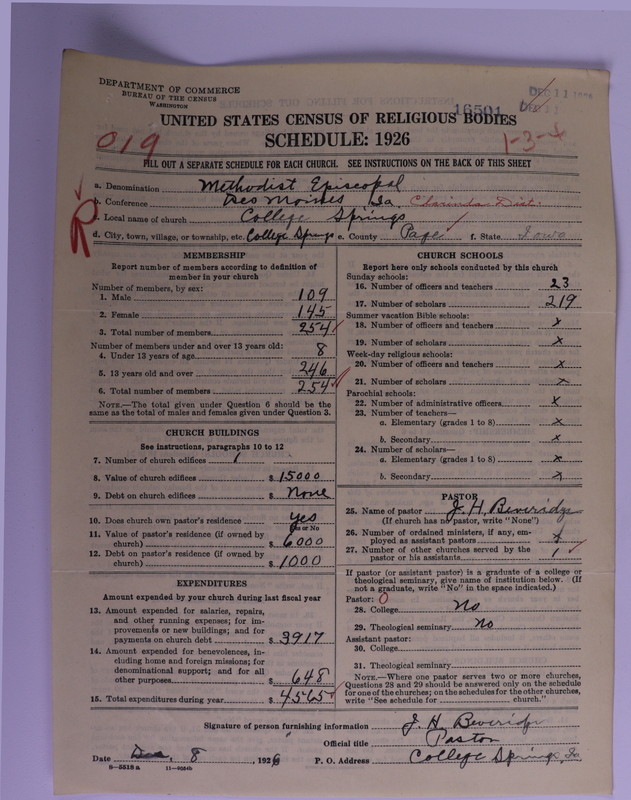 DEPARTMENT OF COMMERCE
BUREAU OF THE CENSUS
WASHINGTON
DEC 11 1926
16501
UNITED STATES CENSUS OF RELIGIOUS BODIES
SCHEDULE: 1926
019
1-3-4
FILL OUT A SEPARATE SCHEDULE FOR EACH CHURCH. SEE INSTRUCTIONS ON THE BACK OF THIS SHEET
a. Denomination Methodist Episcopal
b. Conference Des Moines Ia. Clarinda Dist.
c. Local name of church College Springs
d. City, town, village, or township, etc. College Springs e. County Page f. State Iowa
MEMBERSHIP
Report number of members according to definition of
member in your church
Number of members, by sex:
1. Male 109
2. Female 145
3. Total number of members 254
Number of members under and over 13 years old:
4. Under 13 years of age 8
5. 13 years old and over 246
6. Total number of members 254
NOTE.—The total given under Question 6 should be the
same as the total of males and females given under Question 3.
CHURCH BUILDINGS
See instructions, paragraphs 10 to 12
7. Number of church edifices 1
8. Value of church edifices $ 15000
9. Debt on church edifices $ None
10. Does church own pastor's residence yes
Yes or No
11. Value of pastor's residence (if owned by
church) $ 6000
12. Debt on pastor's residence (if owned by
church) $ 1000
EXPENDITURES
Amount expended by your church during last fiscal year
13. Amount expended for salaries, repairs,
and other running expenses; for im-
provements or new buildings; and for
payments on church debt $ 3917
14. Amount expended for benevolences, in-
cluding home and foreign missions; for
denominational support; and for all
other purposes $ 648
15. Total expenditures during year $ 4565
CHURCH SCHOOLS
Report here only schools conducted by this church
Sunday schools:
16. Number of officers and teachers 23
17. Number of scholars 219
Summer vacation Bible schools:
18. Number of officers and teachers x
19. Number of scholars x
Week-day religious schools:
20. Number of officers and teachers x
21. Number of scholars x
Parochial schools:
22. Number of administrative officers x
23. Number of teachers—
a. Elementary (grades 1 to 8) x
b. Secondary x
24. Number of scholars—
a. Elementary (grades 1 to 8) x
b. Secondary x
PASTOR
25. Name of pastor J. H. Beveridge
(If church has no pastor, write "None")
26. Number of ordained ministers, if any, em-
ployed as assistant pastors
27. Number of other churches served by the
pastor or his assistants 1
If pastor (or assistant pastor) is a graduate of a college or
theological seminary, give name of institution below. (If
not a graduate, write "No" in the space indicated.)
Pastor: 0
28. College No
29. Theological seminary No
Assistant pastor:
30. College
31. Theological seminary
NOTE.—Where one pastor serves two or more churches,
Questions 28 and 29 should be answered only on the schedule
for one of the churches; on the schedules for the other churches,
write "See schedule for church."
Signature of person furnishing information J. H. Beveridge
Official title Pastor
Date Dec. 8, 1926 P. O. Address College Springs, Ia
8—5518a 11—9054b